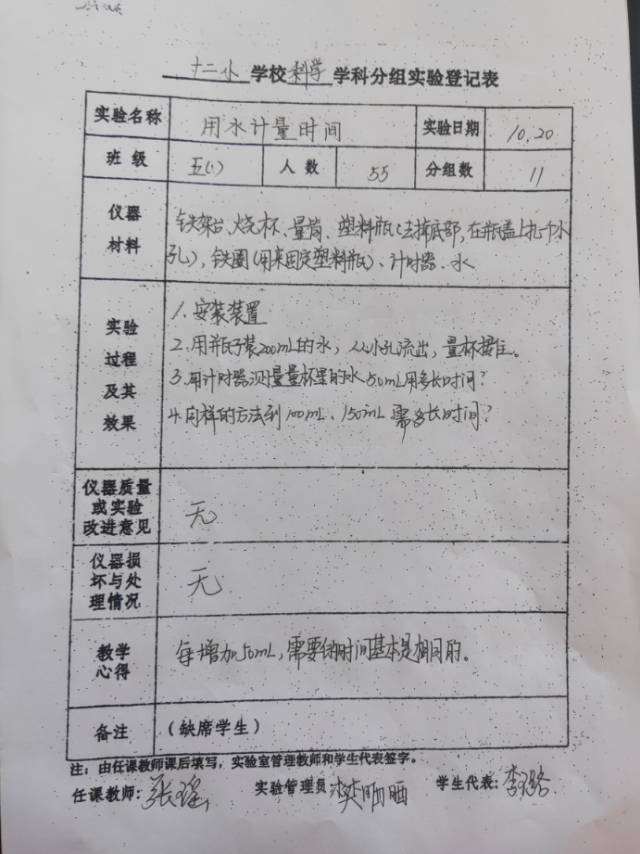 十二小学校科学学科分组实验登记表
实验名称 用水计量时间 实验日期 10.20
班级 五(1) 人数 55 分组数 11
仪器材料 铁架台、烧杯、量筒、塑料瓶(去掉底部,在瓶盖上扎个小
孔),铁圈(用来固定塑料瓶)、计时器、水
实验过程及其效果
1.安装装置
2.用瓶子装200mL的水,从小孔流出,量杯接住。
3.用计时器测量量杯里的水50mL用多长时间?
4.同样的方法到100mL、150mL需多长时间?
仪器质量或实验改进意见 无
仪器损坏与处理情况 无
教学心得 每增加50mL,需要的时间基本是相同的。
备注 (缺席学生)
注:由任课教师课后填写,实验室管理教师和学生代表签字。
任课教师:张瑶 实验管理员: 学生代表: